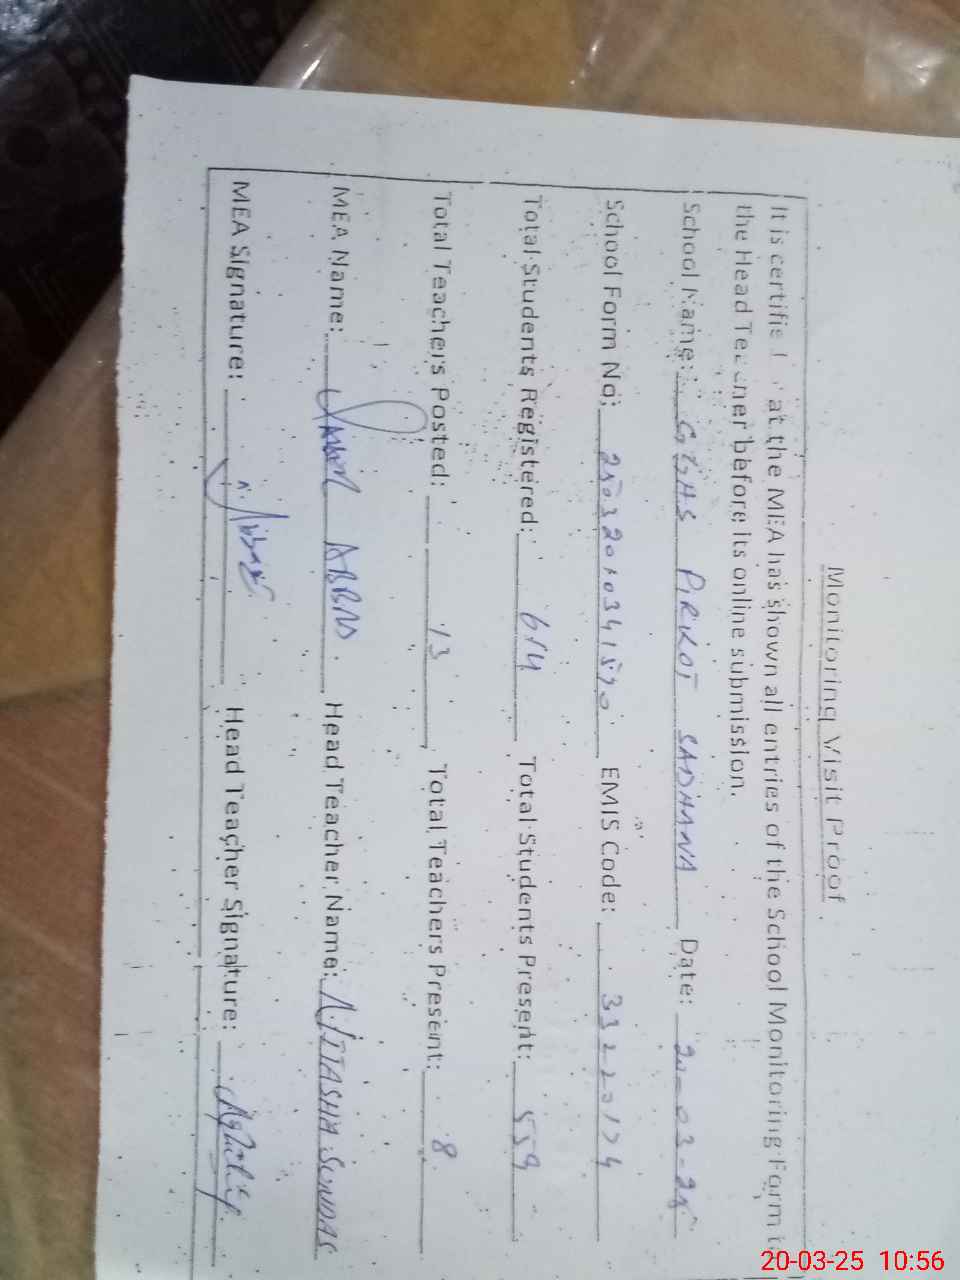 Monitoring Visit Proof
It is certifie at the MEA has shown all entries of the School Monitoring Form t
the Head Teacher before its online submission.
School Name: GGHS PIRKOT SADHANA Date: 20-03-25
School Form No: 25032010341570 EMIS Code: 33220174
Total Students Registered: 614 Total Students Present: 559
Total Teachers Posted: 13 Total Teachers Present: 8
MEA Name: ABBAS Head Teacher Name: SUNDAS
MEA Signature: Head Teacher Signature:
20-03-25 10:56